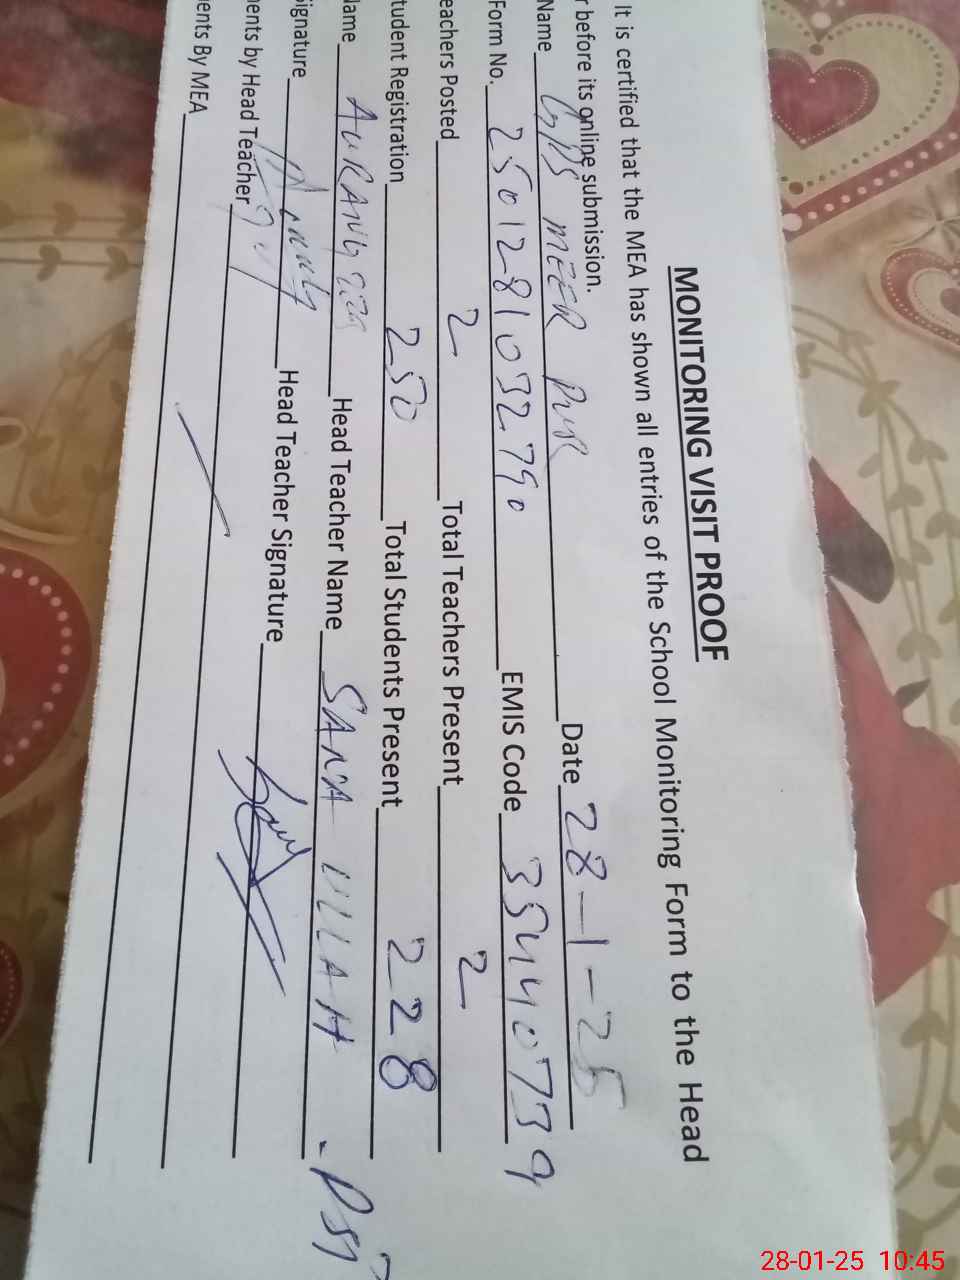 MONITORING VISIT PROOF
It is certified that the MEA has shown all entries of the School Monitoring Form to the Head
r before its online submission.
Name GPS MEER PUR Date 28-1-25
Form No. 2501281032790 EMIS Code 35440739
eachers Posted 2 Total Teachers Present 2
tudent Registration 250 Total Students Present 228
ame AURANGZEB Head Teacher Name SANA ULLAH - PST
ignature Head Teacher Signature
ents by Head Teacher
ents By MEA
28-01-25 10:45